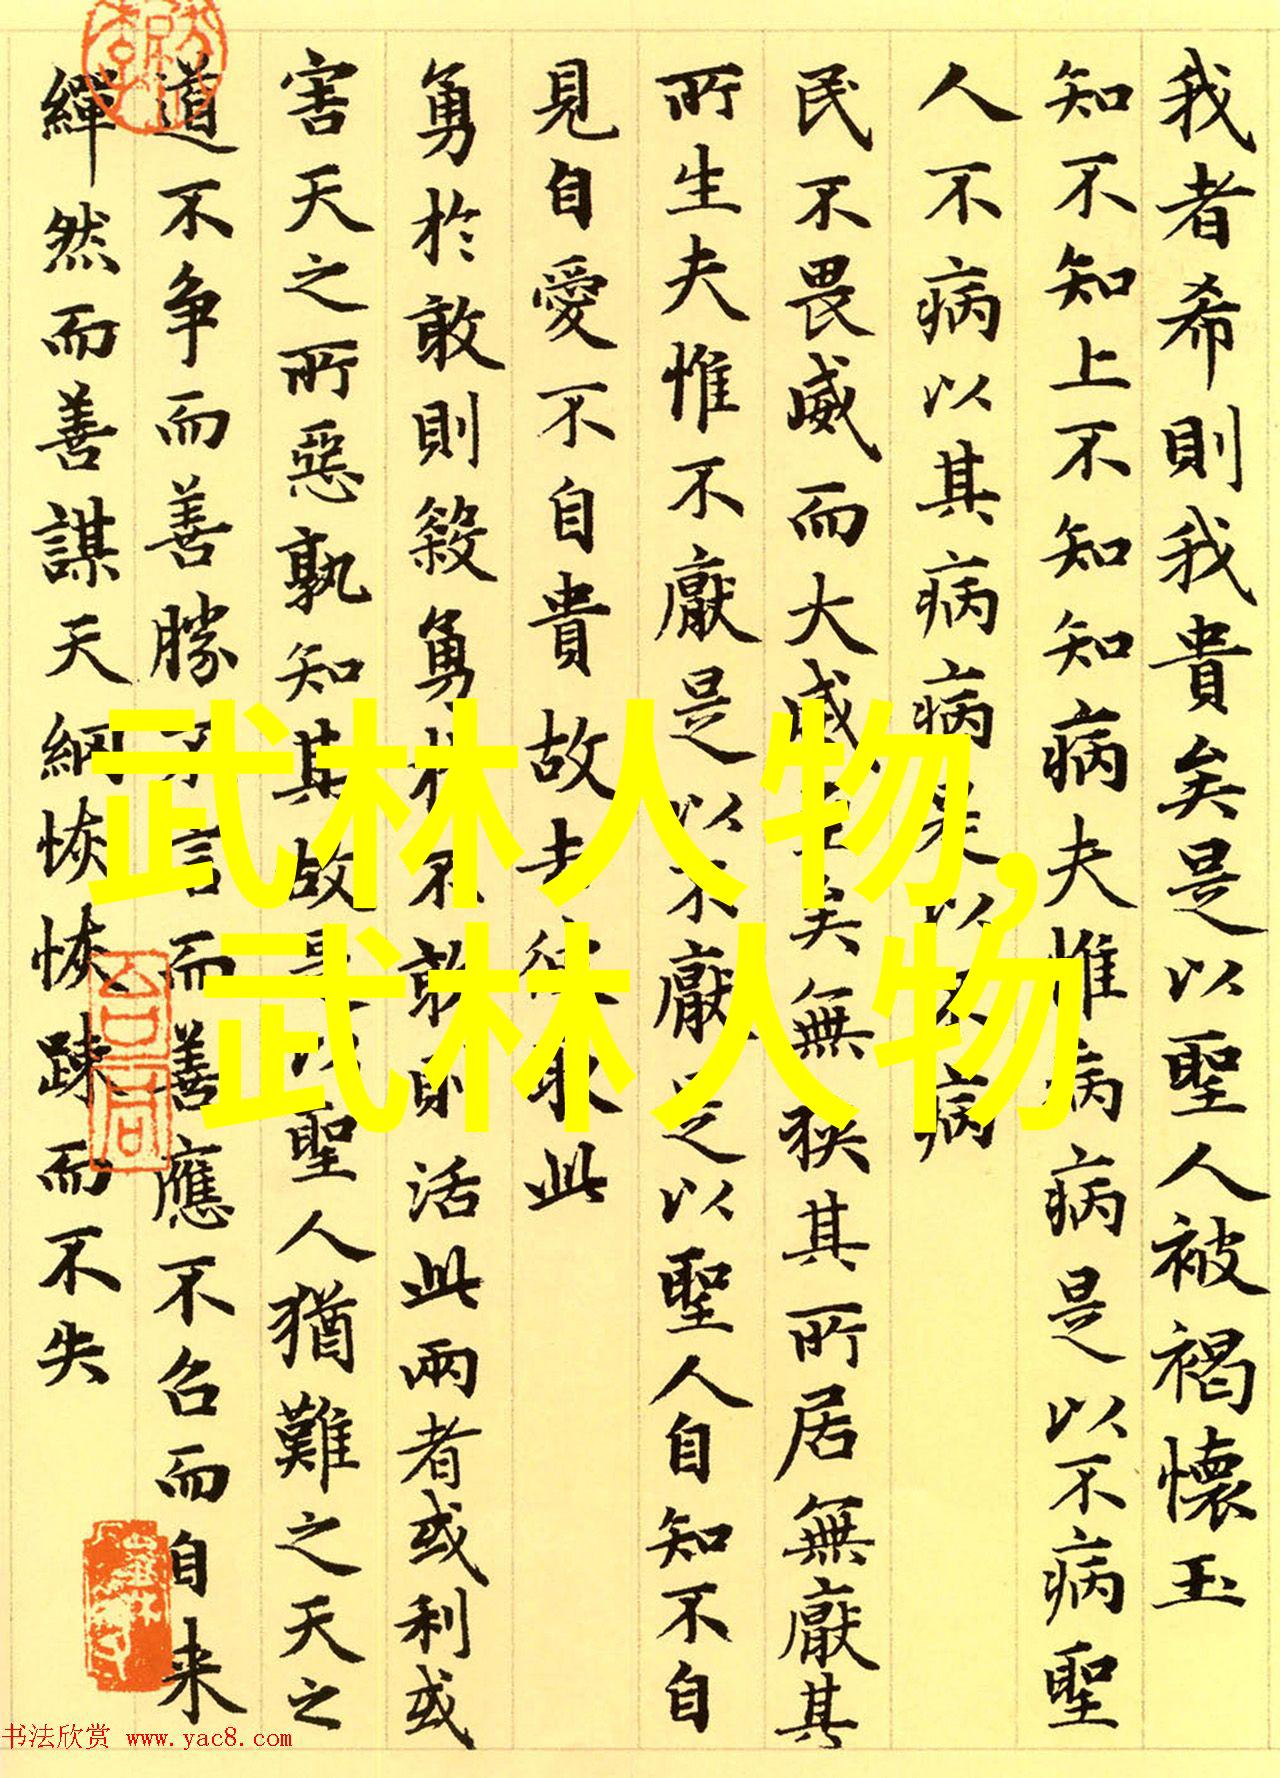 我者希則我貴矣是以聖人被褐懷玉
知不知上不知知病夫惟病病是以不病聖
人不病以其病病是以不病
民不畏威而大威至矣無狹其所居無厭其
所生夫惟不厭是以不厭是以聖人自知不自
見自愛不自貴故去彼取此
勇於敢則殺勇於不敢則活此兩者或利或
害天之所惡孰知其故是以聖人猶難之天之
道不争而善勝不言而善應不召而自来
繟然而善謀天網恢恢踈而不失
武林人物,
武林人物
书法欣赏 www.yac8.com